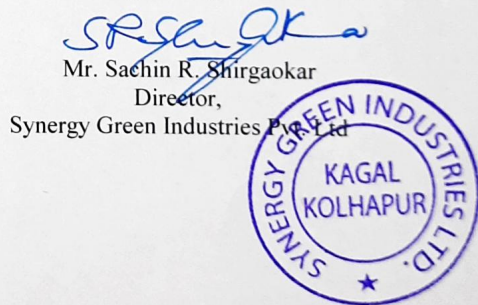 Mr. Sachin R. Shirgaokar
Director,
Synergy Green Industries Pvt. Ltd
SYNERGY GREEN INDUSTRIES LTD.
KAGAL
KOLHAPUR